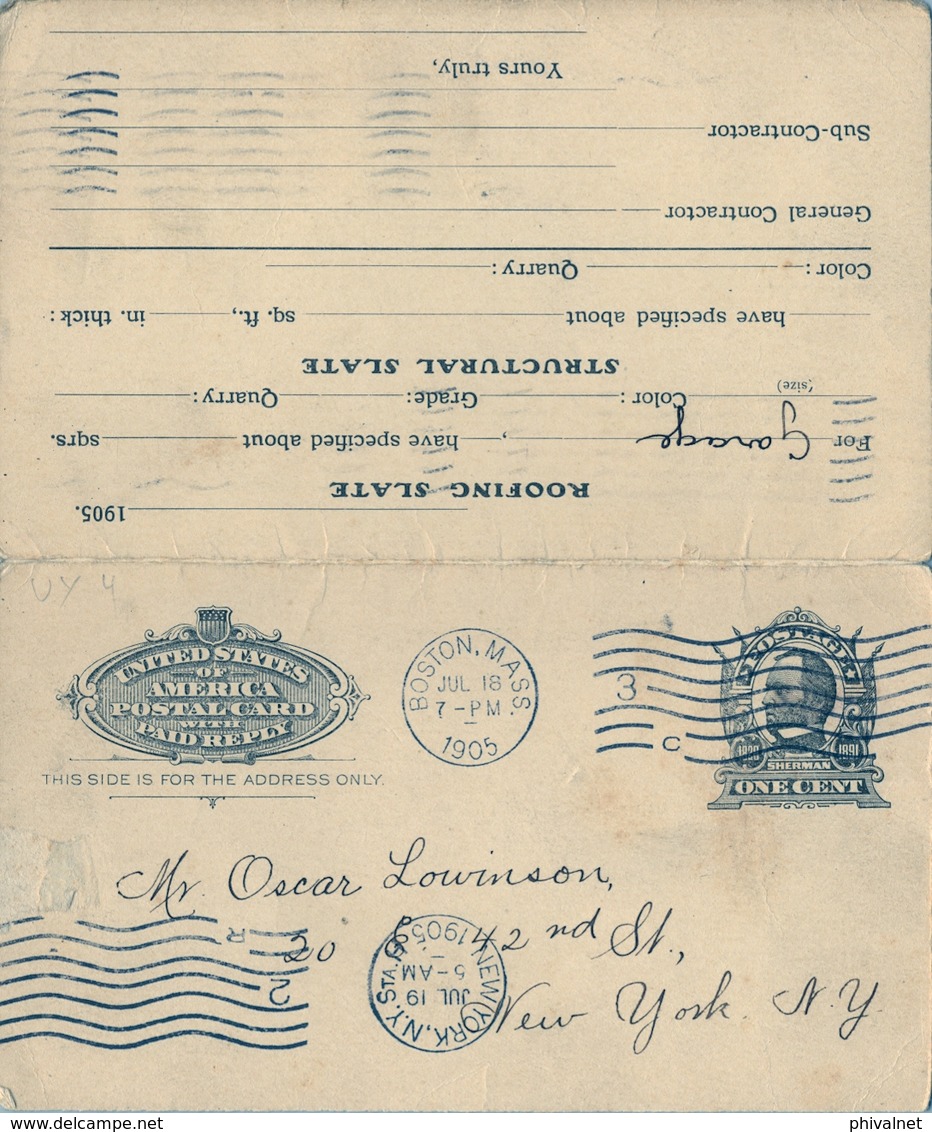 1905.
ROOFING SLATE
For Garage, have specified about sqrs.
(size)
Color: Grade: Quarry:
STRUCTURAL SLATE
have specified about sq. ft., in. thick:
Color: Quarry:
General Contractor
Sub-Contractor
Yours truly,
UY 4
UNITED STATES
OF
AMERICA
POSTAL CARD
WITH
PAID REPLY
THIS SIDE IS FOR THE ADDRESS ONLY.
BOSTON, MASS.
JUL 18
7-PM
1905
3
C
POSTAGE
1820 1891
SHERMAN
ONE CENT
Mr. Oscar Lowinson,
20 E. 42nd St.,
New York. N.Y.
NEW YORK, N.Y. STA.
JUL 19
5-AM
1905
R
2
phivalnet